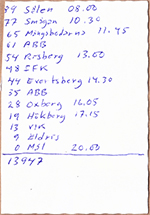 89 Sälen 08.00
77 Smågan 10.30
65 Mångsbodarna 11.45
61 ABB
54 Risberg 13.00
48 IFK
44 Evertsberg 14.30
35 ABB
28 Oxberg 16.05
19 Hökberg 17.15
13 VIK
9 Eldris
0 Mål 20.00
13947